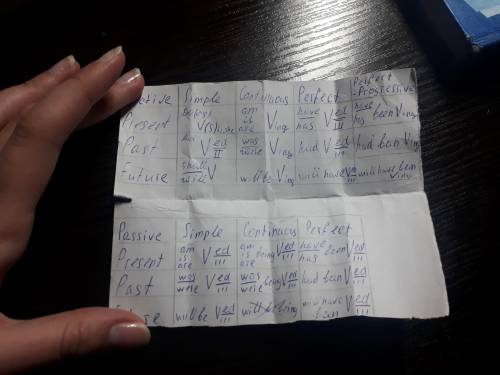 Simple Continuous Perfect Perfect Progressive
Present V(s) am is are Ving have has V ed III have has been Ving
Past V ed II was were Ving had V ed III had been Ving
Future shall will V will be Ving will have V ed III will have been Ving
Passive Simple Continuous Perfect
Present am is are V ed III am is are being V ed III have has been V ed III
Past was were V ed III was were being V ed III had been V ed III
will be V ed III will be being will have been V ed III